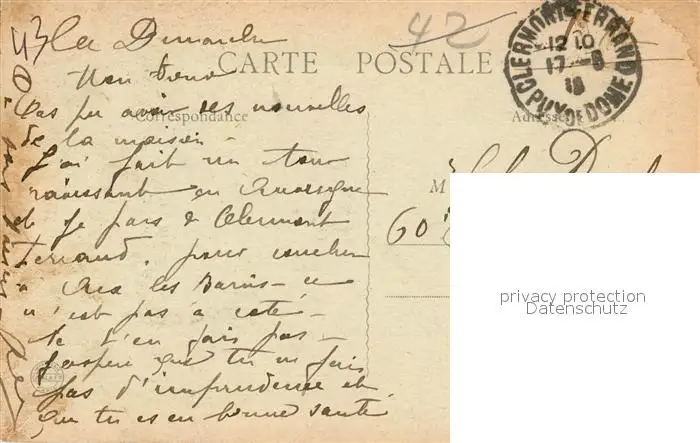 Dimanche
42
CARTE POSTALE
CLERMONT-FERRAND
12 10
17-8
18
PUY DE DOME
Mon
Correspondance
Adresse
Pas pu avoir des nouvelles
de la maison -
J'ai fait un tour
ravissant en Auvergne
et je pars de Clermont
Ferrand, pour coucher
à Aix les Bains - ce
n'est pas à coté -
Ne t'en fais pas -
J'espère que tu ne fais
pas d'imprudence et
que tu es en bonne santé
M
60
privacy protection
Datenschutz